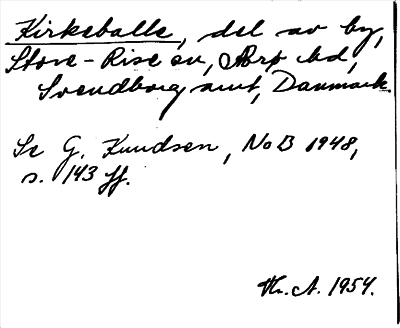 Kirkeballe, del av by,
Store-Rise sn, Ærø hd,
Svendborg amt, Danmark.
Se G. Knudsen, NoB 1948,
s. 143 ff.
Th. A. 1954.